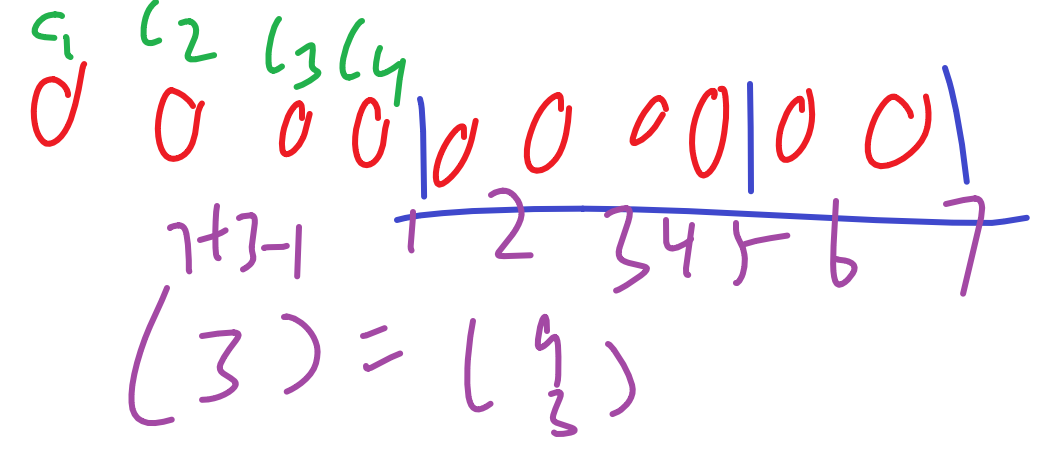 C1 C2 C3 C4
0 0 0 0 | 0 0 0 0 | 0 0 |
1 2 3 4 5 6 7
7+3-1
( 3 ) = ( 9
3 )